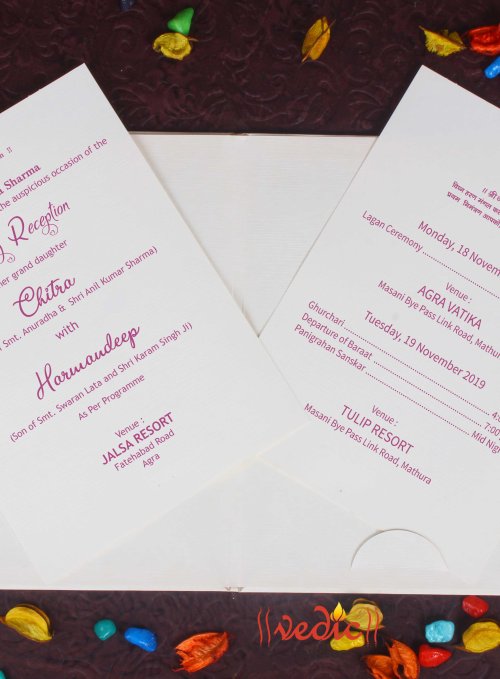 ॥
Sharma
the auspicious occasion of the
Reception
her grand daughter
Chitra
Smt. Anuradha & Shri Anil Kumar Sharma)
with
Harmandeep
(Son of Smt. Swaran Lata and Shri Karam Singh Ji)
As Per Programme
Venue :
JALSA RESORT
Fatehabad Road
Agra
॥ श्री
Monday, 18 Novem
Lagan Ceremony
Venue :
AGRA VATIKA
Masani Bye Pass Link Road, Mathu
Tuesday, 19 November 2019
Ghurchari
Departure of Baraat
7:00
Panigrahan Sanskar
Mid Nig
Venue :
TULIP RESORT
Masani Bye Pass Link Road, Mathura
||vedic||